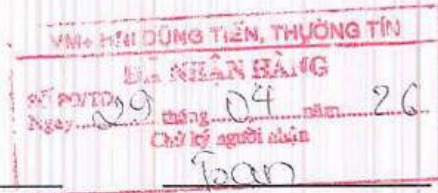 VM+ HNI DŨNG TIẾN, THƯỜNG TÍN
ĐÃ NHẬN HÀNG
SỐ PO/TO:
Ngày 29 tháng 04 năm 26
Chữ ký người nhận
Toan